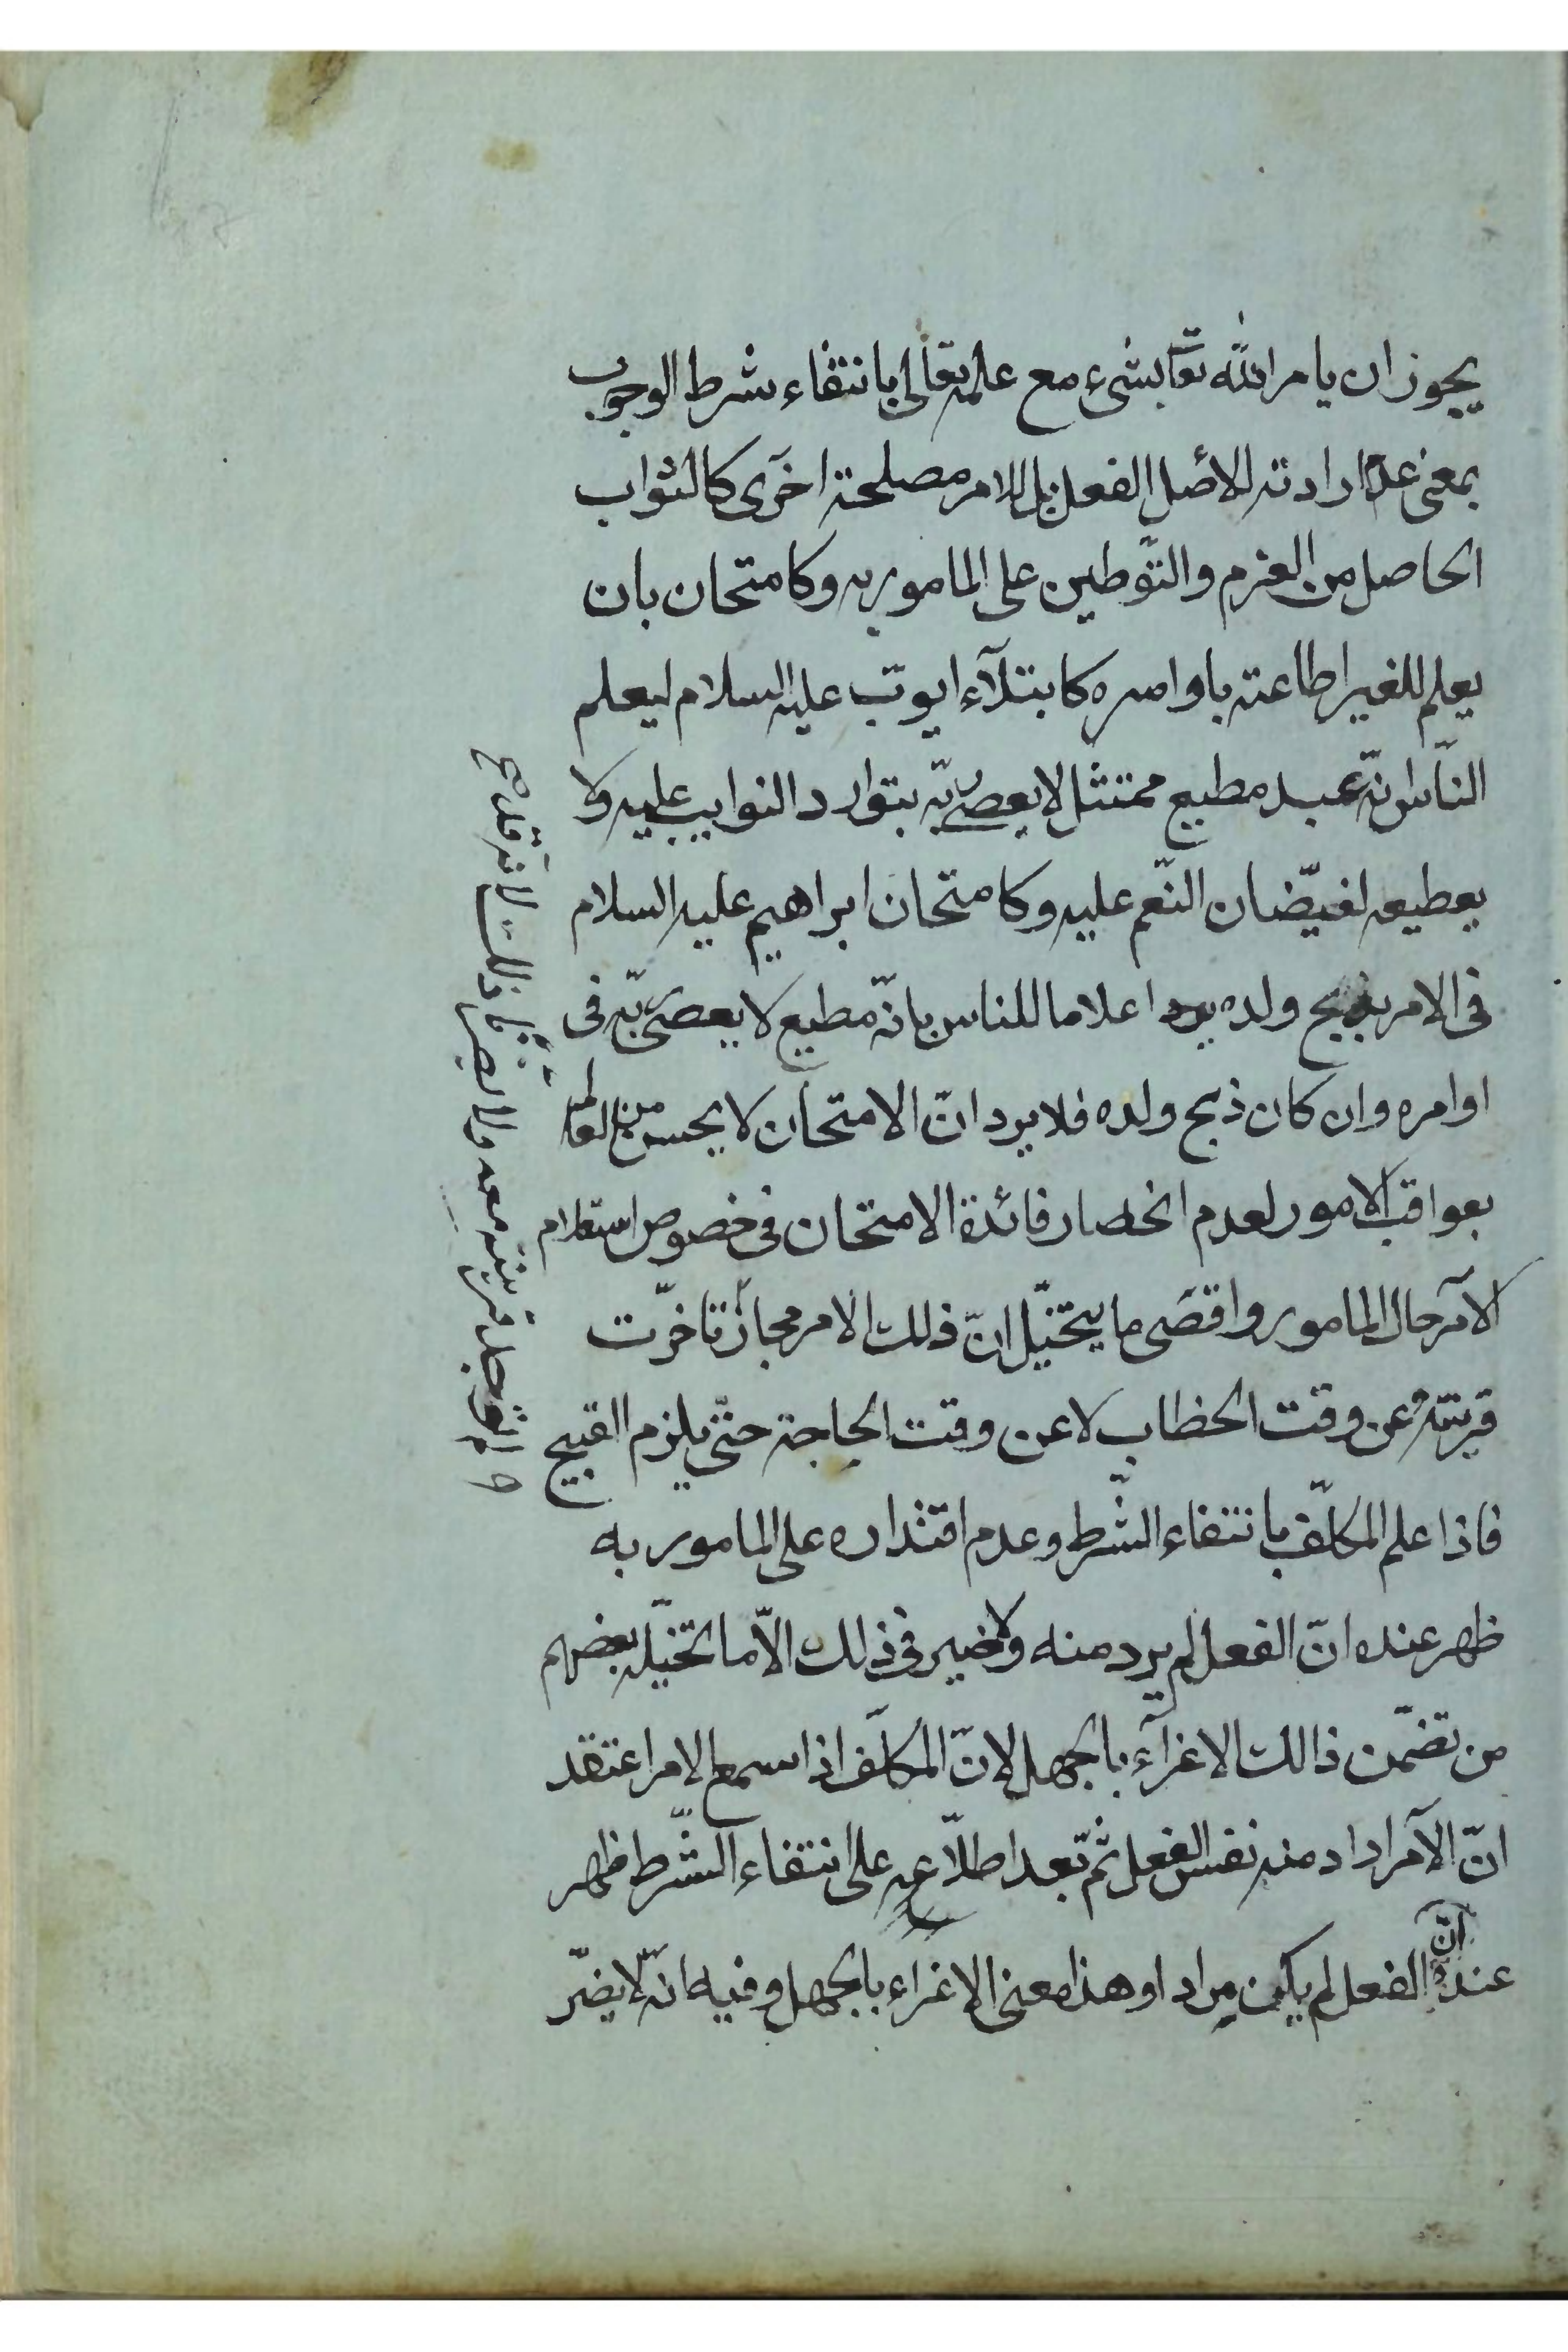 يجوز ان يامر الله تعا بشیء مع علمه تعالى بانتفاء شرط الوجوب
بمعنى عدم ارادته لاصل الفعل بل للامر مصلحة اخرى كالثواب
الحاصل من العزم والتوطين على المامور به وكامتحان بان
يعلم للغير اطاعته باوامره كابتلآء ايوب عليه السلام ليعلم
النّاس انّه عبد مطيع ممتثل لا يعصى ربّه بتوارد النوايب عليه ولا
يعطيعه لفيضان النّعم عليه وكامتحان ابراهيم عليه السلام
فى الامر بذبح ولده اعلاما للناس بانّه مطيع لا يعصى ربّه فى
اوامره وان كان ذبح ولده فلا يرد انّ الامتحان لا يحسن من العالم
بعواقب الامور لعدم انحصار فائدة الامتحان فى خصوص استعلام
الآمر حال المامور واقصى ما يتخيّل انّ ذلك الامر مجاز تاخّرت
قرينته عن وقت الخطاب لا عن وقت الحاجة حتّى يلزم القبيح
فاذا علم المكلّف بانتفاء الشّرط وعدم اقتداره على المامور به
ظهر عنده انّ الفعل لم يرد منه ولا ضير فى ذلك الّا ما تخيّله بعضهم
من تضمّن ذالك الاغرآء بالجهل لانّ المكلّف اذا سمع الامر اعتقد
انّ الآمر اراد منه نفس الفعل ثمّ بعد اطلاعه على انتفاء الشّرط ظهر
عنده انّ الفعل لم يكن مرادا وهذا معنى الاغراء بالجهل وفيه انّه لا يضرّ